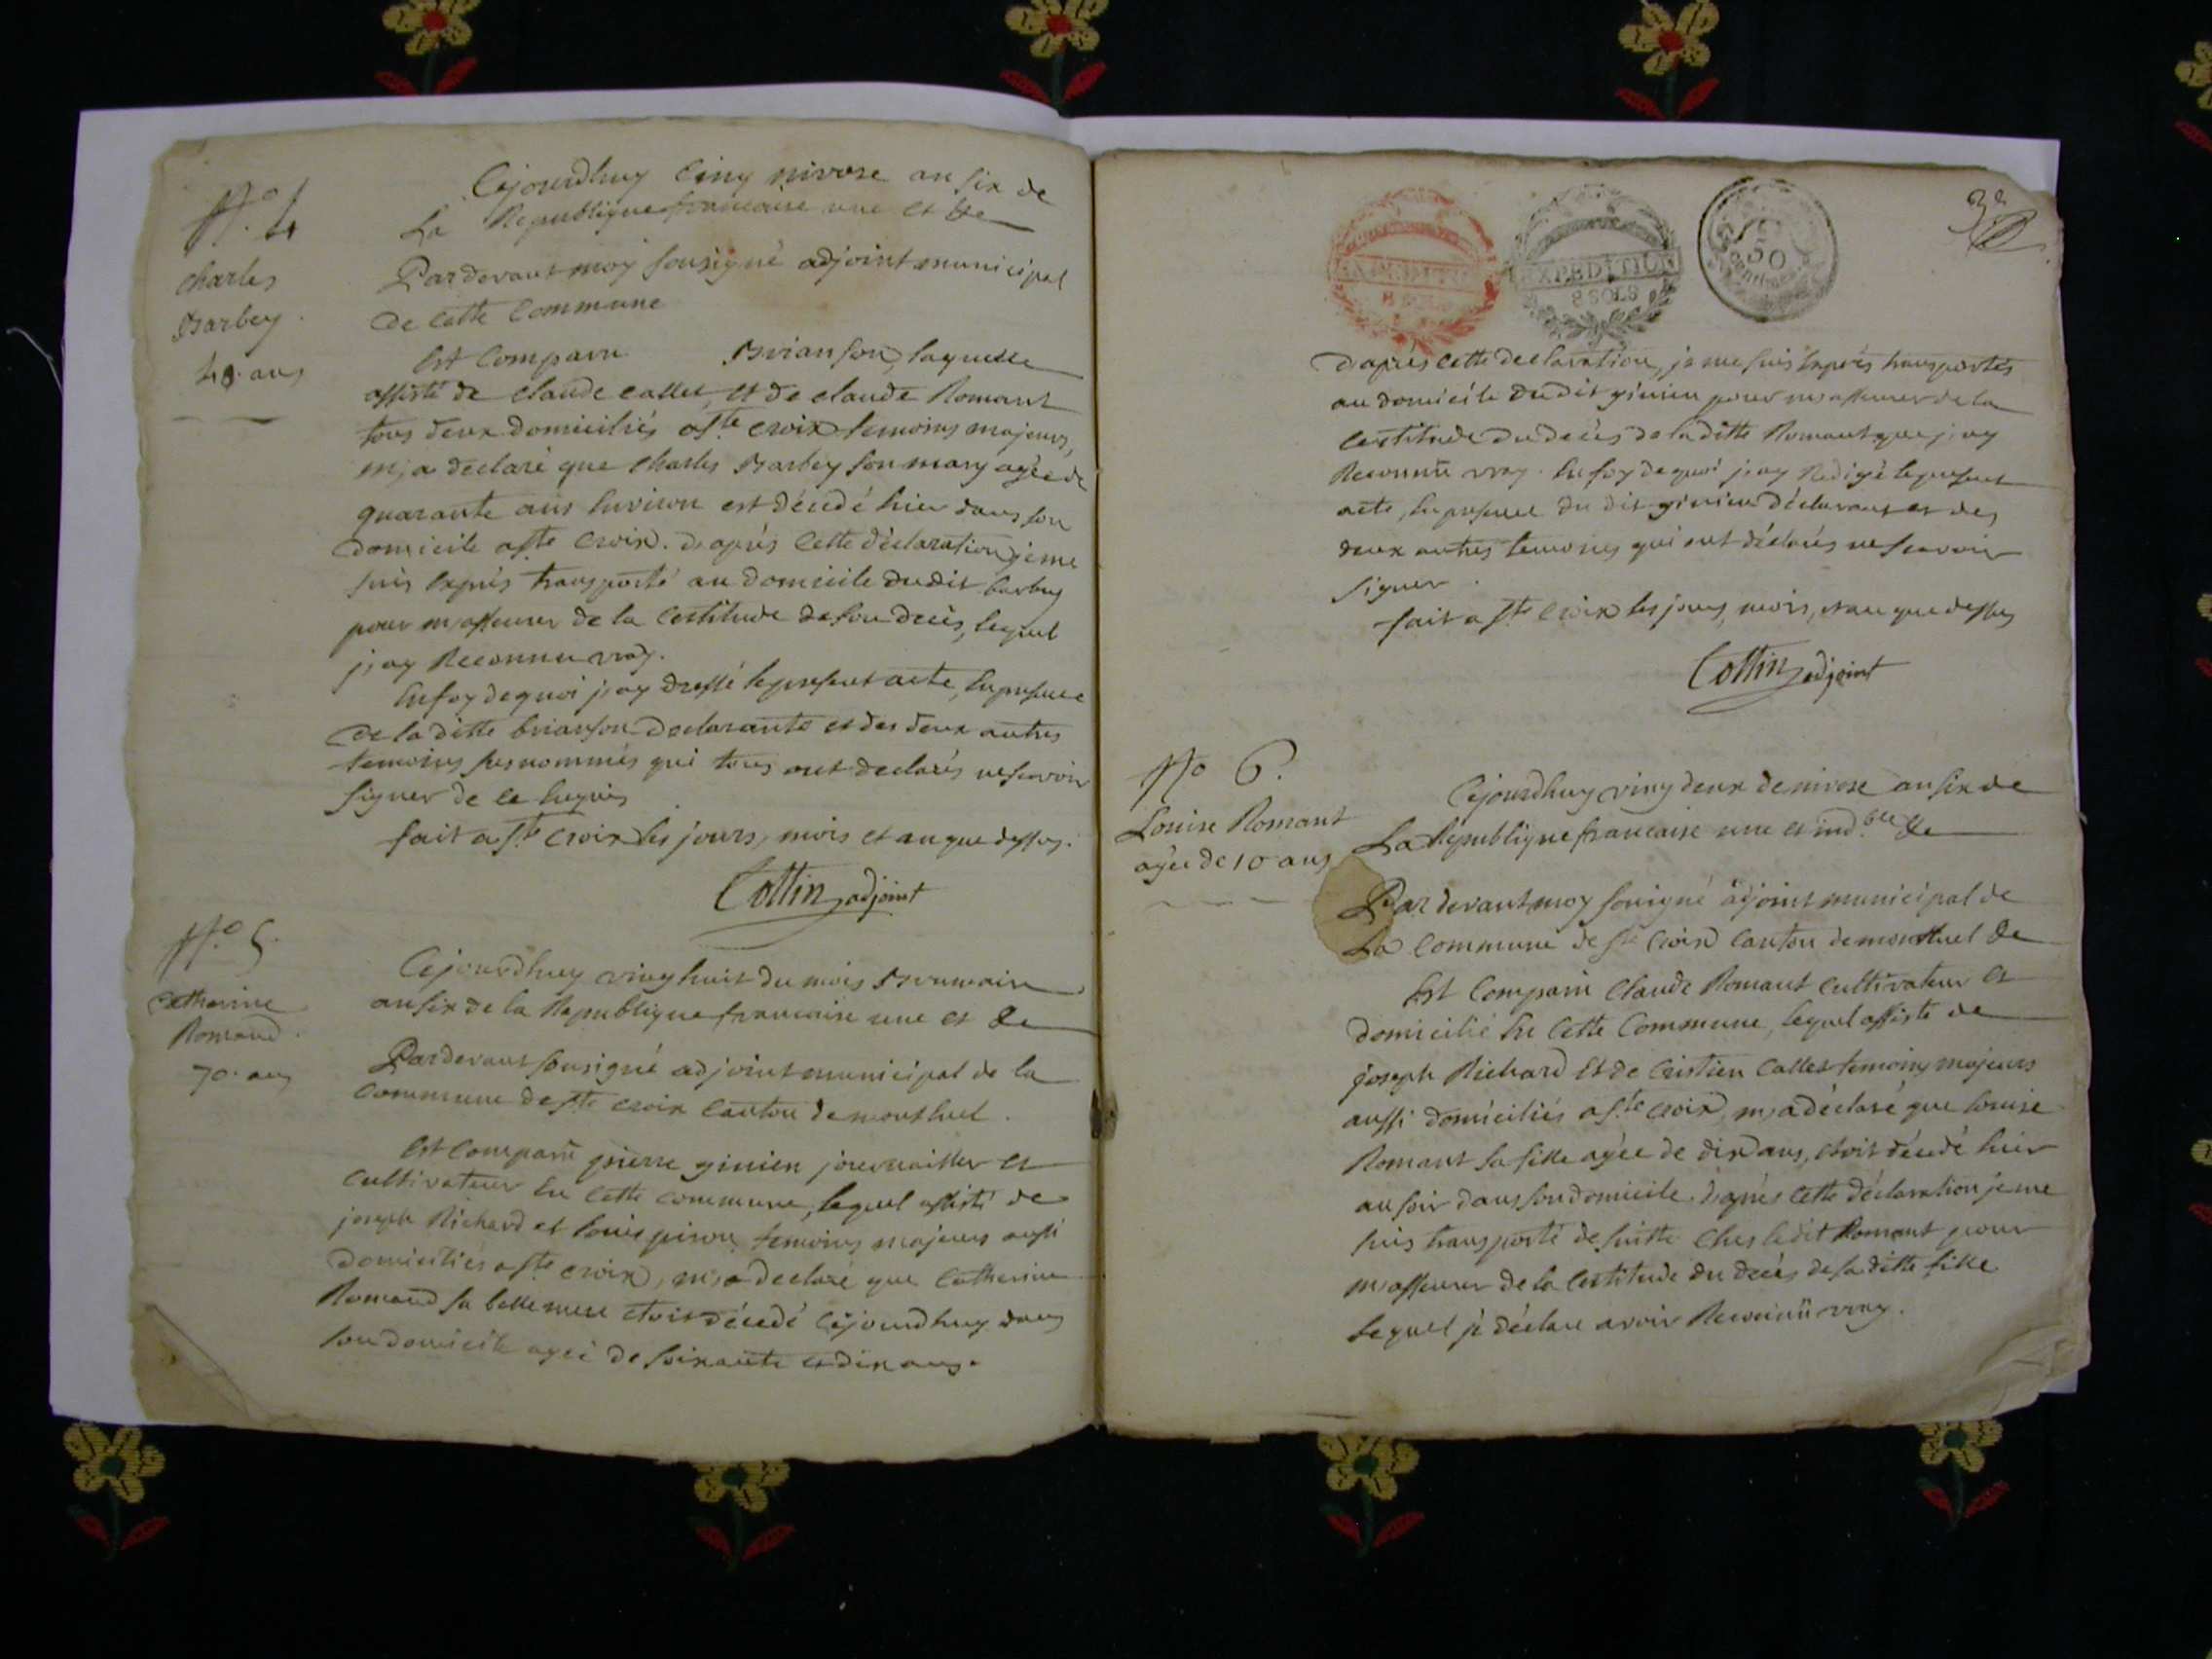 N.o 4
charles
Barbey.
40. ans
Cejourdhuy cinq nivose an six de
La Republique francaise une et &e
Pardevant moy sousigné adjoint municipal
De cette Commune
Est Comparu Brianson, laquelle
assisté de claude callet, et de claude Romant
tous deux domiciliés a ste croix temoins majeurs,
m,a declaré que charles Barbey son mary agée de
quarante ans environ est décedé hier dans son
domicile a ste Croix. D,aprés Cette déclaration je me
suis Exprés transporté au domicile dudit barbey
pour m,asseurer de la Certitude de son decés, lequel
j,ay Reconnu vray.
En foy de quoi j,ay dressé le present acte, En presence
De la ditte brianson Declarante et des deux autres
temoins susnommés qui tous ont declarés ne scavoir
signer de ce Enquis
fait a ste Croix les jours, mois et an que dessus.
Cottin adjoint
N.o 5.
Catherine
Romand.
70. ans
Cejourdhuy ving huit du mois Brumaire
an six de la Republique francaise une et &e
Pardevant sousigné adjoint municipal de la
Commune de ste croix Canton de montluel.
Est Comparu pierre ginien journaillier et
Cultivateur En cette commune, lequel assisté de
joseph Richard et Louis pirou temoins majeurs aussi
domiciliés a ste croix, m,a declaré que Catherine
Romand sa belle mere etoit décedé Cejourdhuy dans
son domicile agée de soixante et dix ans.
EXPEDITION
8 SOLS
EXPEDITION
8 SOLS
50
Centimes
3e
D,aprés cette declaration, je me suis Exprés transportés
au domicile dudit ginien pour m,asseurer de la
Certitude du decés de la ditte Romant que j,ay
Reconnü vray. En foy de quoi j,ay Redigé le present
acte, En presence du dit ginien déclarant et des
deux autres temoins qui ont déclarés ne scavoir
signer.
fait a ste Croix les jours, mois, et an que dessus
Cottin adjoint
No 6.
Louise Romant
agée de 10 ans
Cejourdhuy ving deux de nivose an six de
La Republique francaise une et ind.ble &e
Par devant moy sousigné adjoint municipal de
La Commune de ste Croix Canton de montluel &e
Est Comparu Claude Romant Cultivateur et
domicilié En Cette Commune, lequel assisté de
joseph Richard et de Cristien Callet temoins majeurs
aussi domiciliés a ste croix, m,a déclaré que Louise
Romant sa fille agée de dix ans, étoit décedé hier
au soir dans son domicile. D,aprés Cette déclaration je me
suis transporté de suitte Chés ledit Romant pour
m,asseurer de la Certitude du decés de sa ditte fille
lequel je déclare avoir Reconnü vray.